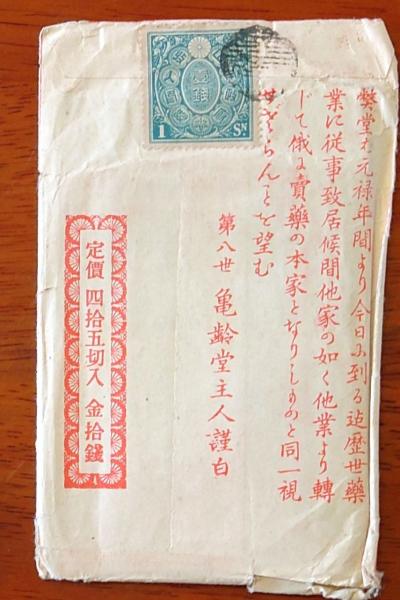 弊堂は元禄年間より今日に到る迠歴世藥
業に従事致居候間他家の如く他業より轉
じて俄に賣藥の本家となりしものと同一視
せざらんことを望む
第八世 亀齢堂主人謹白
定價 四拾五切入 金拾錢
壹錢
1 SN